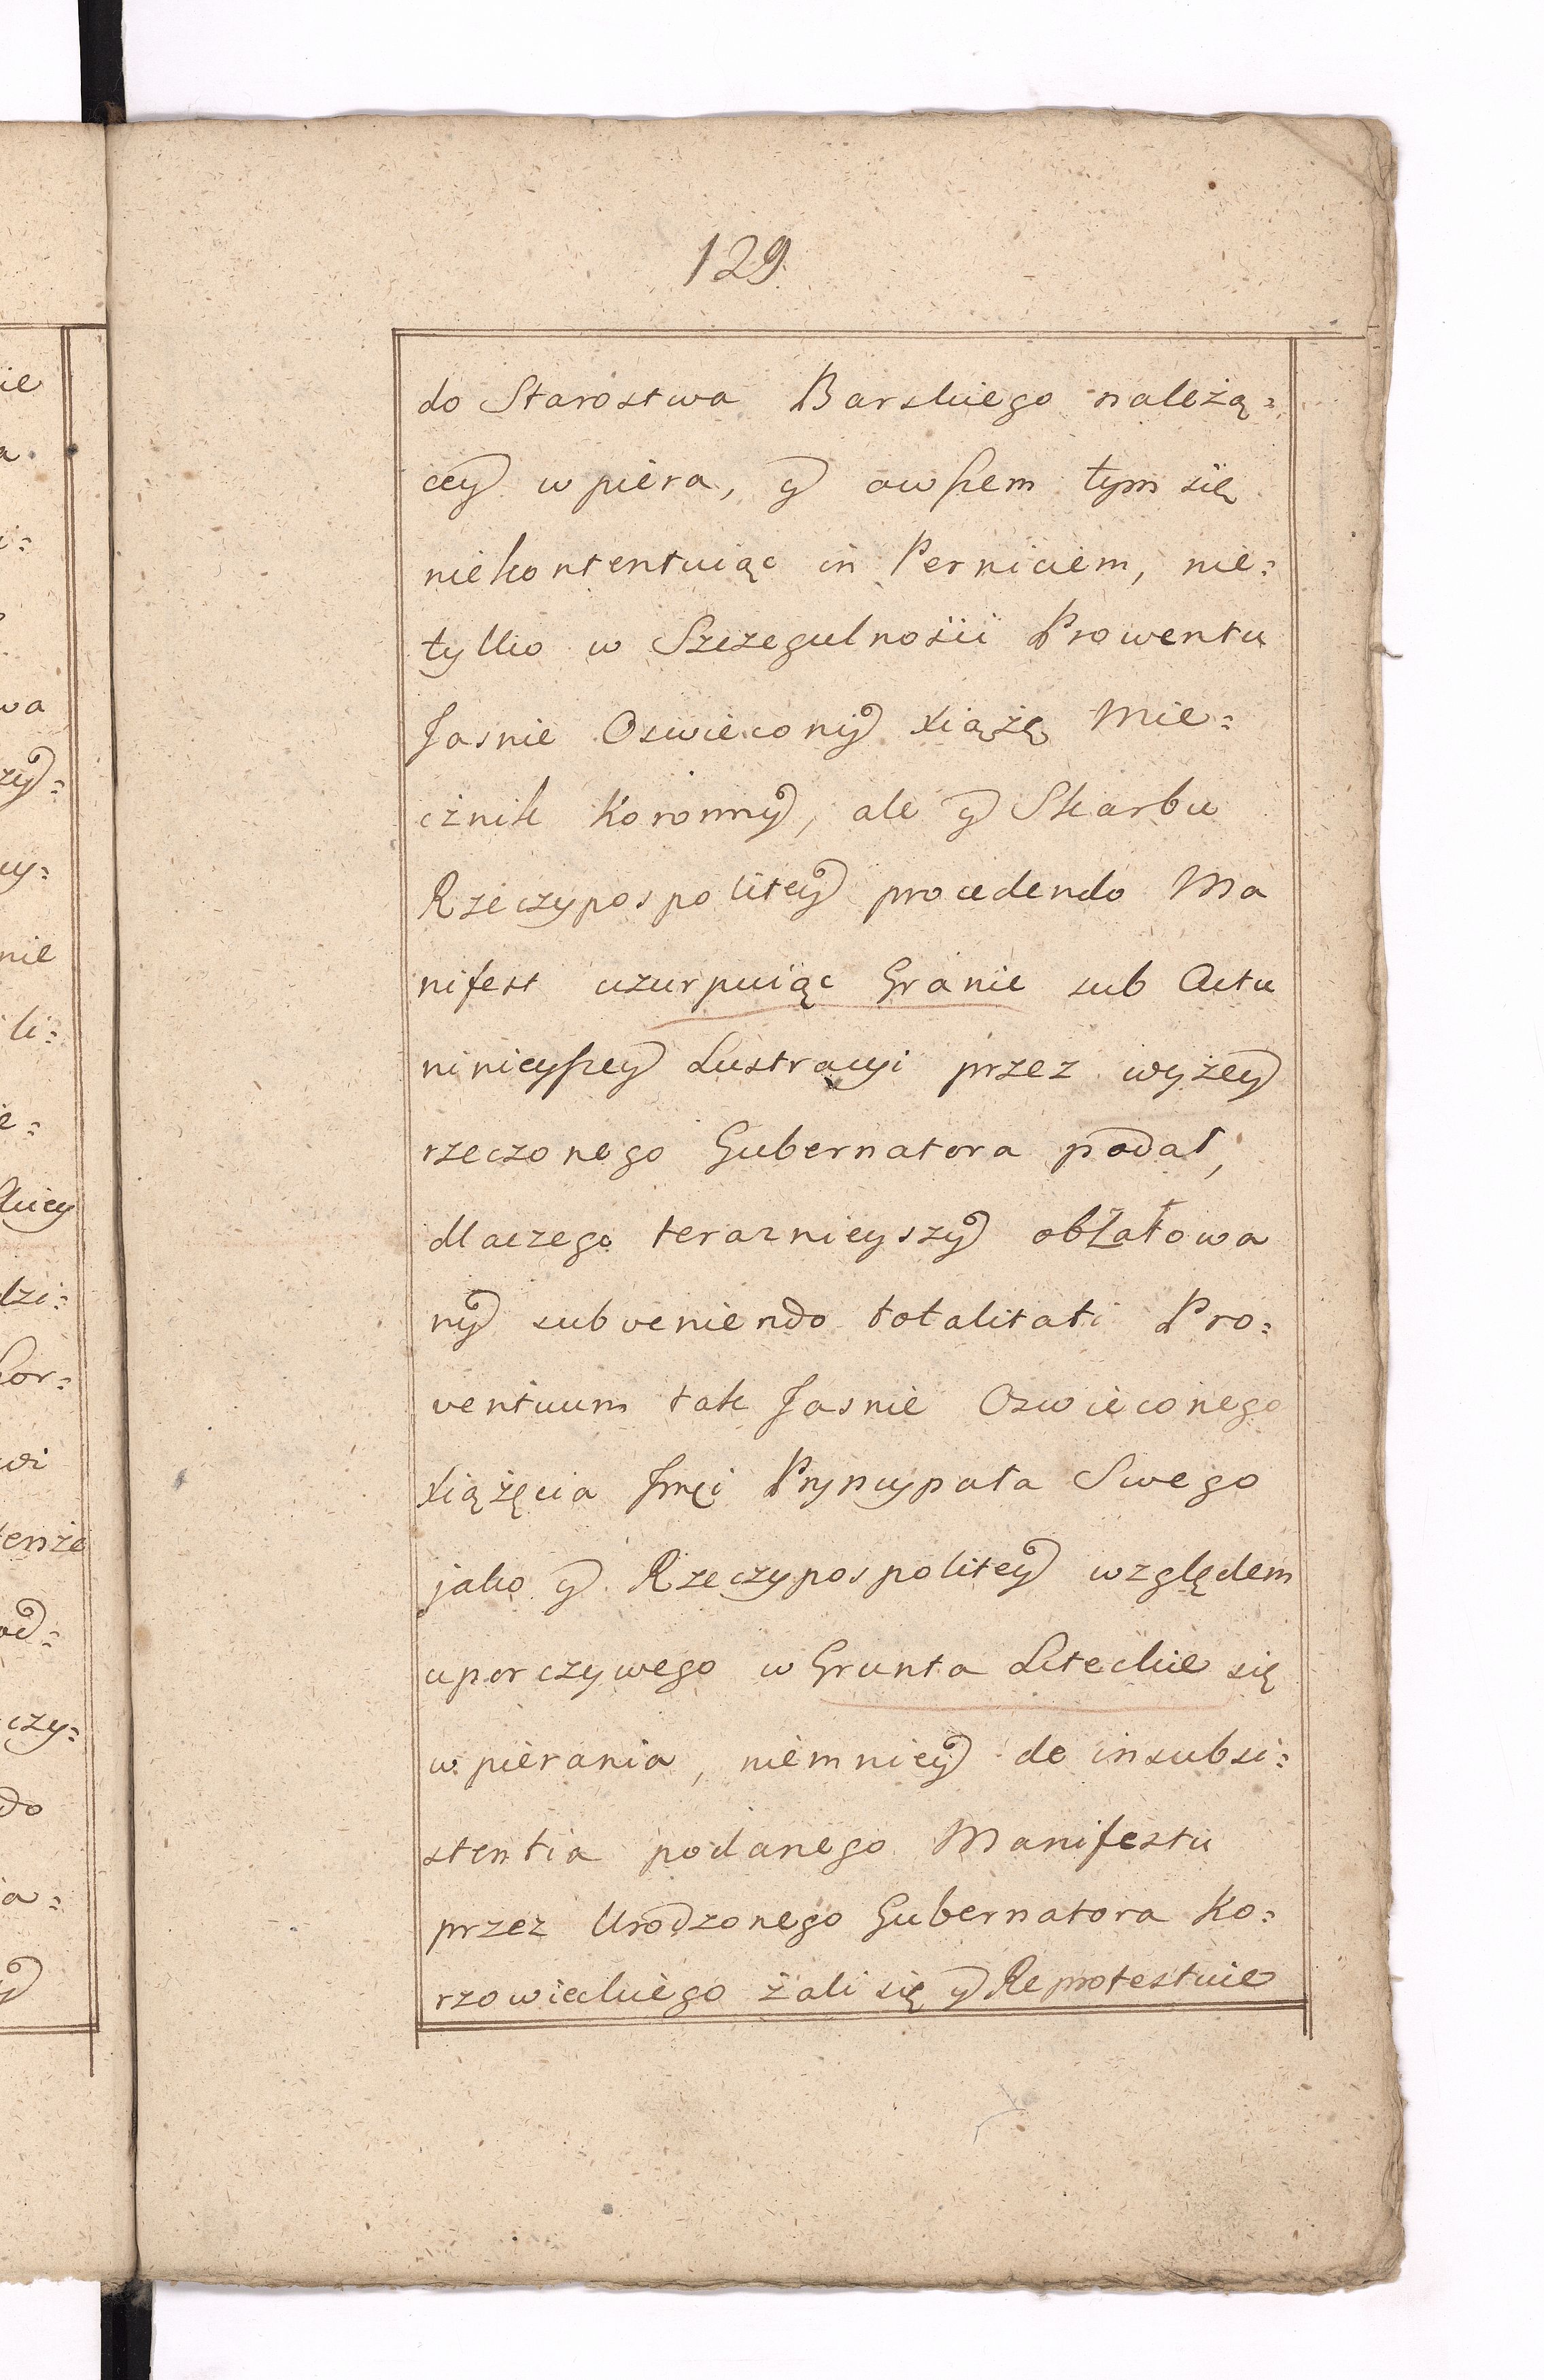 129.
do Starostwa Barskiego należą=
cey wpiera, y owszem tym się
niekontentuiąc in Perniciem, nie=
tylko w Szczegulnosii Prowentu
Jasnie Oswiecony Xiążę Mie=
cznik Koronny, ale y Skarbu
Rzeczypospolitey procedendo Ma
nifest uzurpuiąc Granic sub Actu
ninieyszey Lustracyi przez wyżey
rzeczonego Gubernatora podał,
dlaczego teraznieyszy obżałowa
ny subveniendo totalitati Pro=
ventuum tak Jasnie Oswieconego
Xiążęcia Jmći Pryncypała Swego
jako y Rzeczypospolitey względem
uporczywego w Grunta Liteckie się
wpierania, niemniey de insubsi=
stentia podanego Manifestu
przez Urodzonego Gubernatora Ko=
rzowieckiego żali się y Reprotestuie